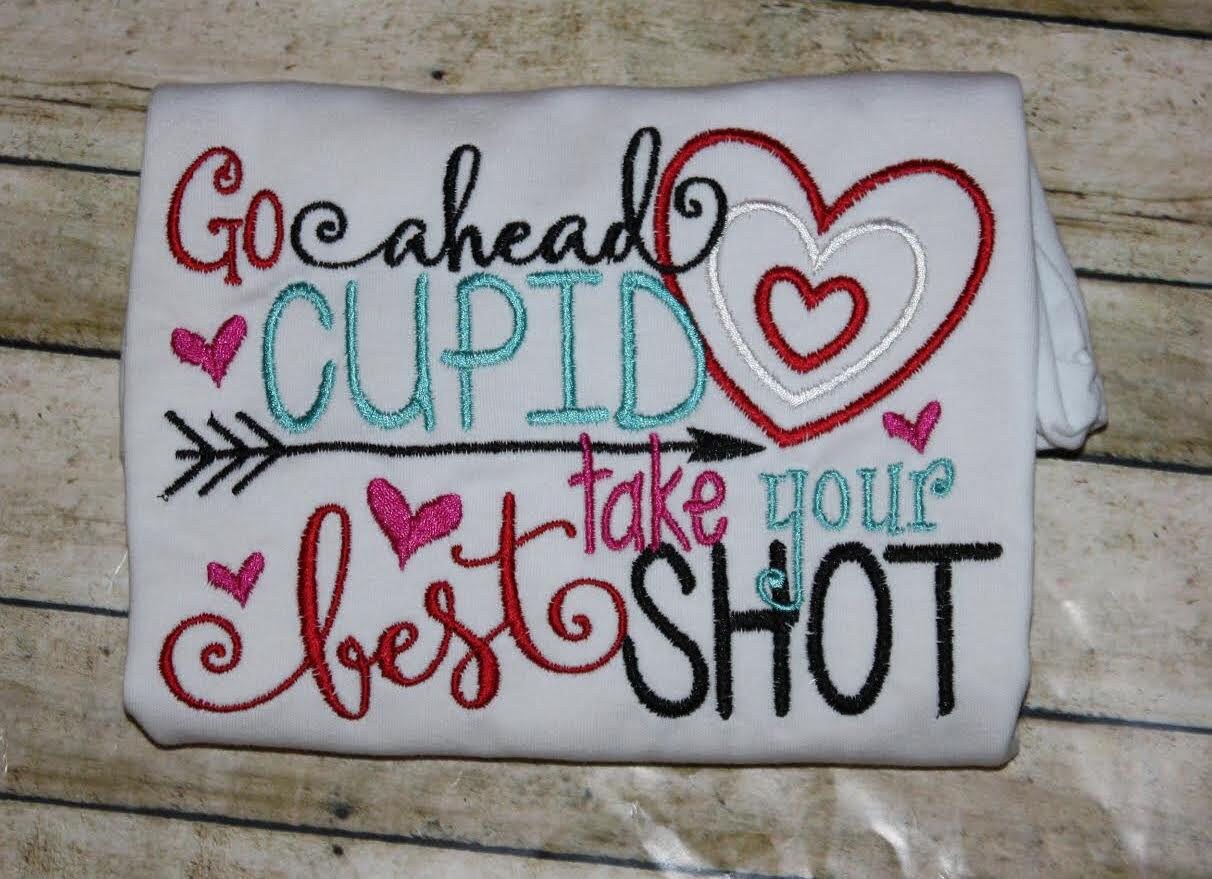 Go ahead
CUPID
take your
best SHOT